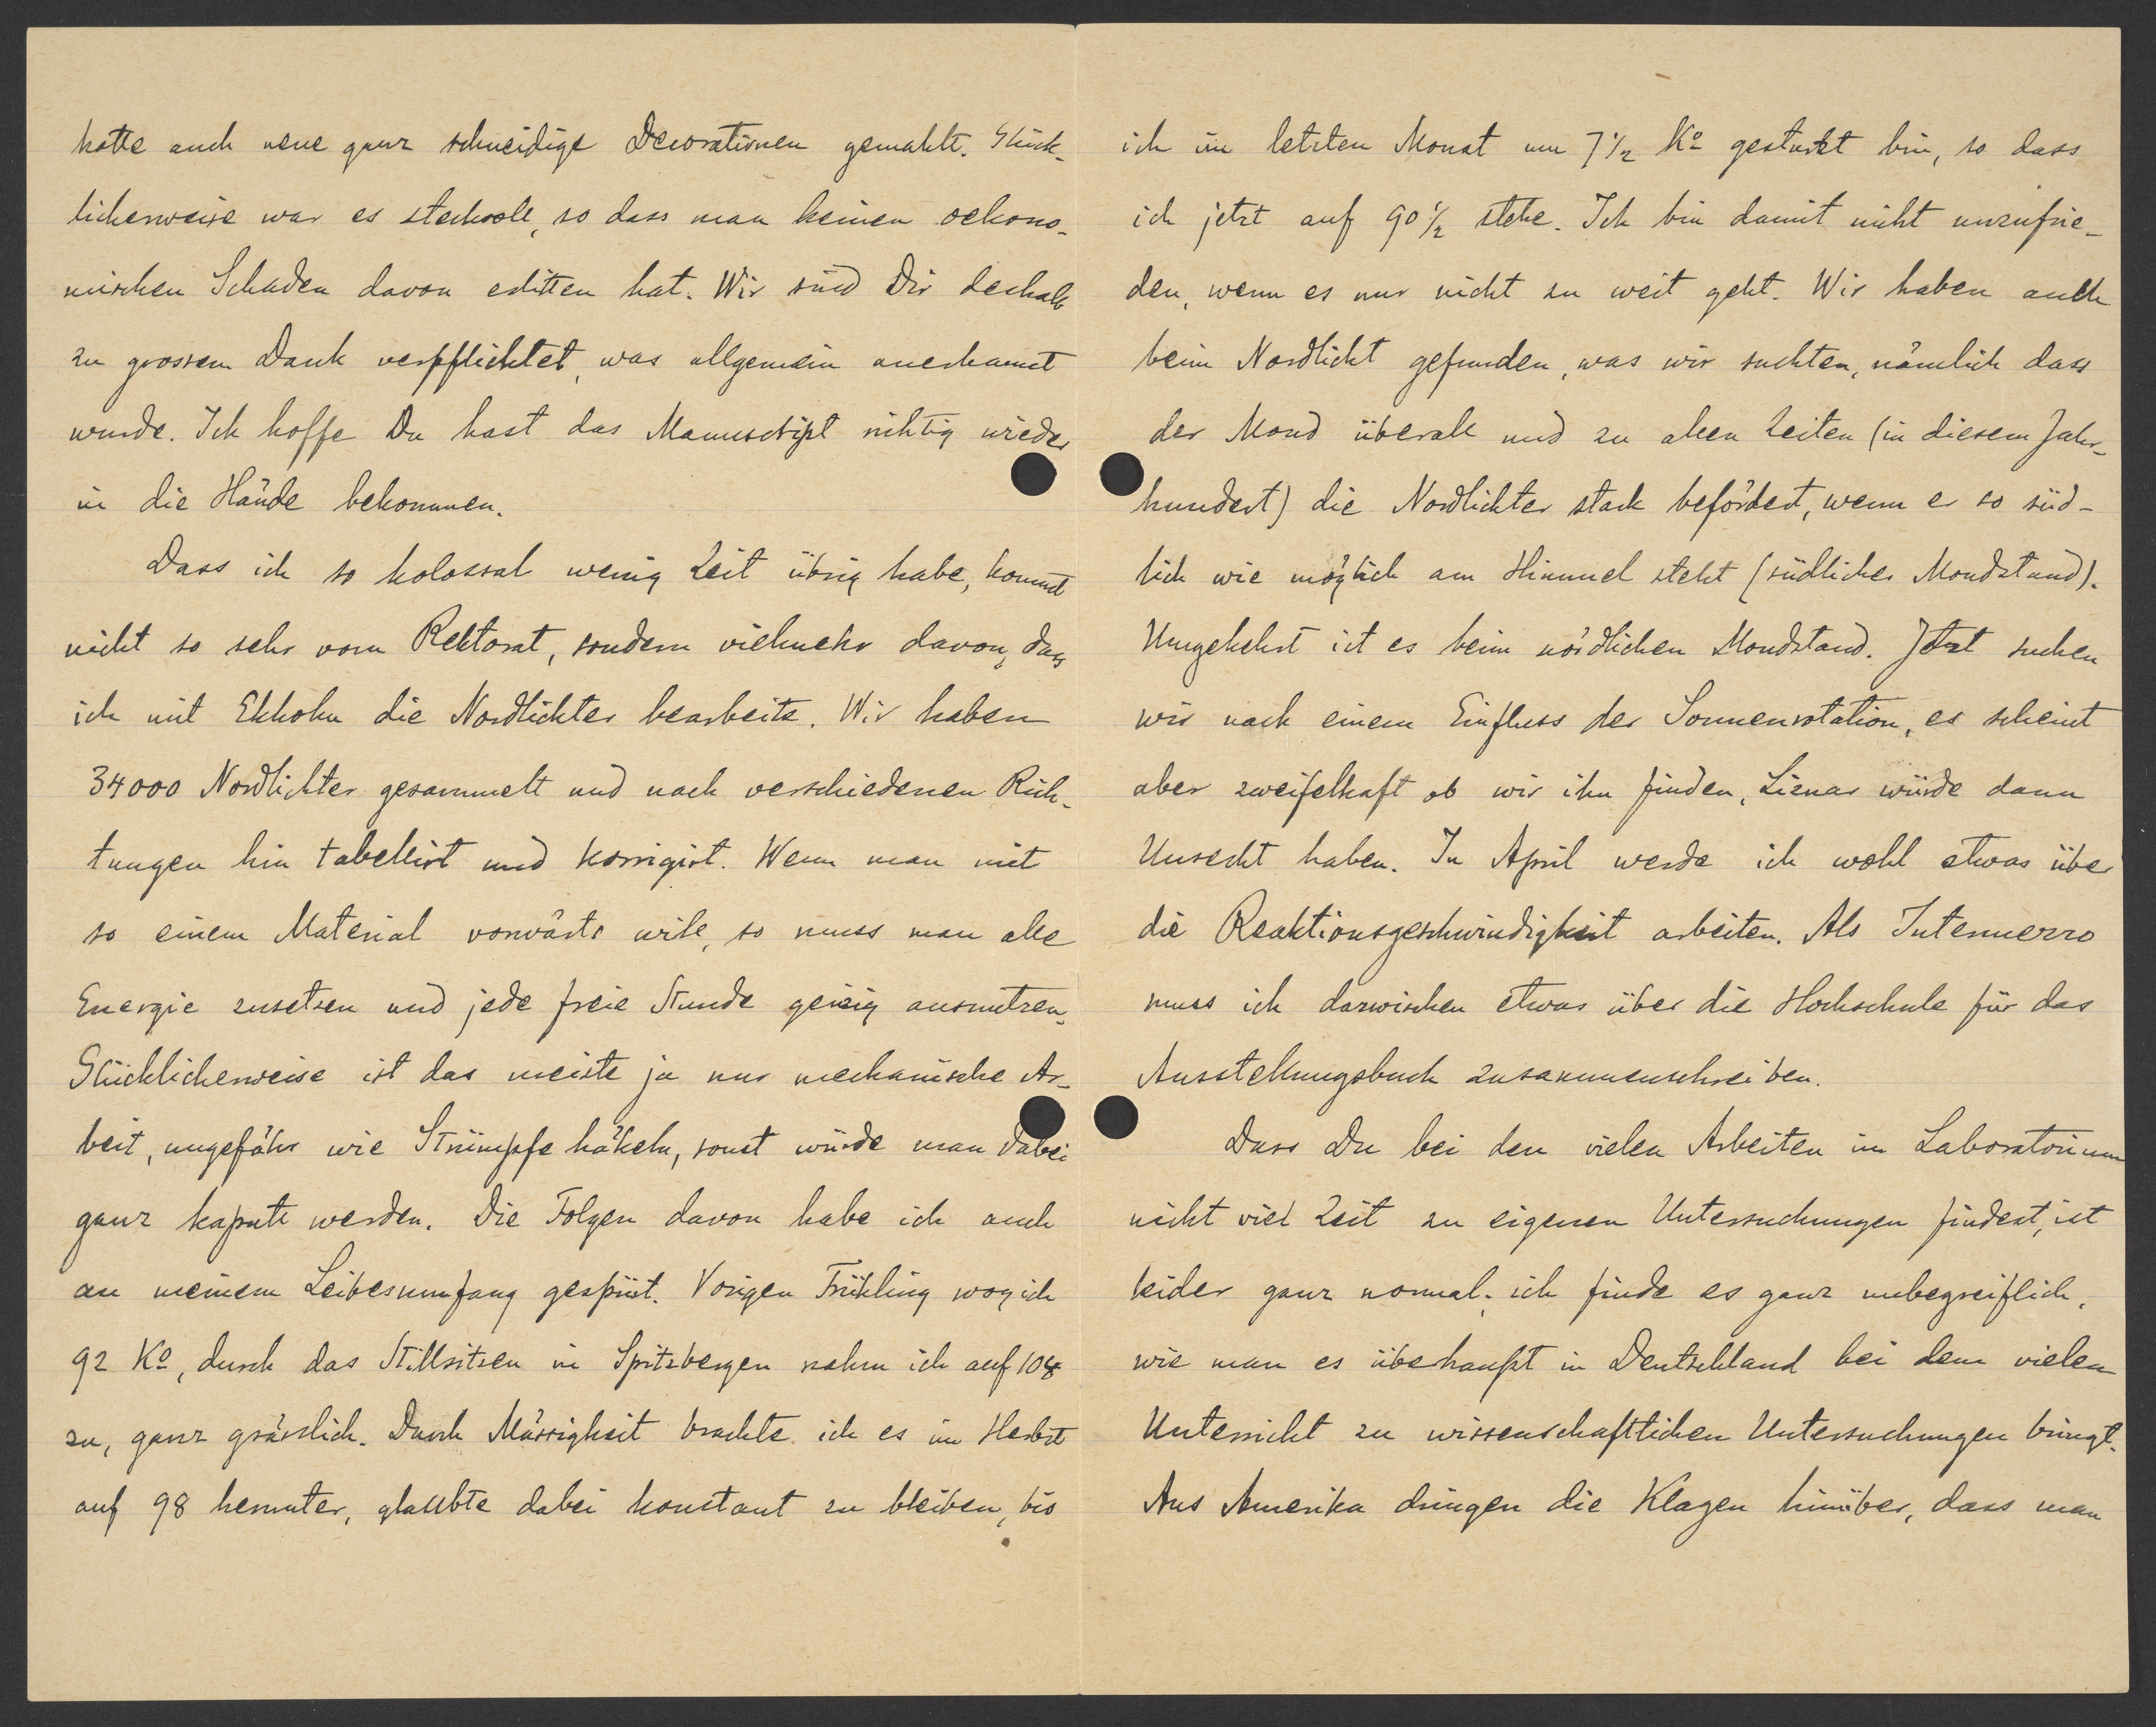 hatte auch neue ganz schneidige Decorationen gemahlt. Glück-
licherweise war es steckvoll, so dass man keinen oekono-
mischen Schaden davon erlitten hat. Wir sind Dir deshalb
zu grossem Dank verpflichtet, was allgemein anerkannt
wurde. Ich hoffe Du hast das Manuscript richtig wieder
in die Hände bekommen.
Dass ich so kolossal wenig Zeit übrig habe, kommt
nicht so sehr vom Rektorat, sondern vielmehr davon, dass
ich mit Ekholm die Nordlichter bearbeite. Wir haben
34000 Nordlichter gesammelt und nach verschiedenen Rich-
tungen hin tabellirt und korrigirt. Wenn man mit
so einem Material vorwärts will, so muss man alle
Energie zusetzen und jede freie Stunde geizig ausnutzen.
Glücklicherweise ist das meiste ja nur mechanische Ar-
beit, ungefähr wie Strümpfe häkeln, sonst würde man dabei
ganz kaputt werden. Die Folgen davon habe ich auch
an meinem Leibesumfang gespürt. Vorigen Frühling wog ich
92 Ko, durch das Stillsitzen in Spitzbergen nahm ich auf 104
zu, ganz grässlich. Durch Mässigkeit brachte ich es im Herbst
auf 98 herunter, glaubte dabei konstant zu bleiben, bis
ich im letzten Monat um 7 1/2 Ko gestürzt bin, so dass
ich jetzt auf 90 1/2 stehe. Ich bin damit nicht unzufrie-
den, wenn es nur nicht zu weit geht. Wir haben auch
beim Nordlicht gefunden, was wir suchten, nämlich dass
der Mond überall und zu allen Zeiten (in diesem Jahr-
hundert) die Nordlichter stark befördert, wenn er so süd-
lich wie möglich am Himmel steht (südlicher Mondstand).
Umgekehrt ist es beim nördlichen Mondstand. Jetzt suchen
wir nach einem Einfluss der Sonnenrotation, es scheint
aber zweifelhaft ob wir ihn finden, Liznar würde dann
Unrecht haben. In April werde ich wohl etwas über
die Reaktionsgeschwindigkeit arbeiten. Als Intermezzo
muss ich dazwischen etwas über die Hochschule für das
Ausstellungsbuch zusammenschreiben.
Dass Du bei den vielen Arbeiten im Laboratorium
nicht viel Zeit zu eigenen Untersuchungen findest, ist
leider ganz normal; ich finde es ganz unbegreiflich,
wie man es überhaupt in Deutschland bei dem vielen
Unterricht zu wissenschaftlichen Untersuchungen bringt.
Aus Amerika dringen die Klagen hinüber, dass man